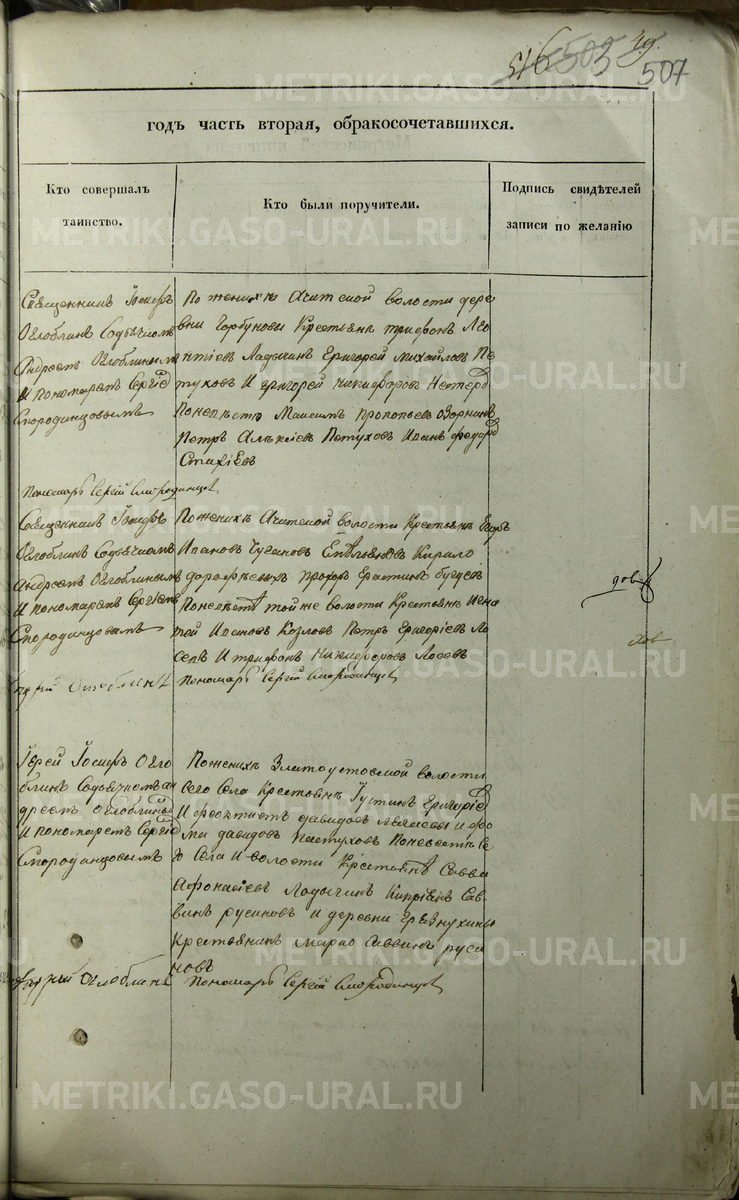 516 503 49.
507
годъ часть вторая, обракосочетавшихся.
Кто совершалъ
таинство.
Кто были поручители.
Подпись свидѣтелей
записи по желанію
Священникъ Іосифъ
Оглоблинъ Содьячкомъ
Андреемъ Оглоблинымъ
И пономаремъ Сергіе
Смородинцовымъ
По женихѣ Ачитской волости дере
вни Горбуновы Крестьяне трифонъ Лео
нтіевъ Ладыгинъ Григорей Михайловъ Пе
туховъ И григорей никифоровъ
Поневѣстѣ Максимъ Прокопьевъ Озорнинъ
Петръ Алексіевъ Петуховъ Иванъ федоровъ
Стахіевъ
Пономарь Сергій Смородинцовъ
Священникъ Іосифъ
Оглоблинъ Содьячкомъ
андреемъ Оглоблинымъ
И пономаремъ Сергіемъ
Смородинцовымъ
Поженихѣ Ачитской волости Крестьяне Егоръ
Ивановъ Чугановъ Кирило
дорофѣевыхъ прохоръ
Поневѣстѣ тойже волости Крестьяне Игна
тей Ивановъ Козловъ Петръ Григоріевъ Ло
севъ И трифонъ Никифоровъ Лосевъ
Пономарь Сергій Смородинцовъ
Оглоблинъ
Іерей Іосифъ Огло
блинъ Содьячкомъ ан
дреемъ Оглоблины
И пономаремъ Сергіе
Смородинцовымъ
Поженихѣ Златоустовской волости
сего Села Крестьяне Густинъ Григоріе
И феоктистъ давидовъ и фо
ма давидовъ Пастуховъ Поневестѣ Се
го Села И волости Крестьяне Савва
Афонасіевъ Ладыгинъ Кипріянъ Сав
винъ русиновъ и деревни Грязнухины
Крестьянинъ Марко Саввинъ руси
новъ
Оглоблинъ
Пономарь Сергій Смородинцовъ
METRIKI.GASO-URAL.RU